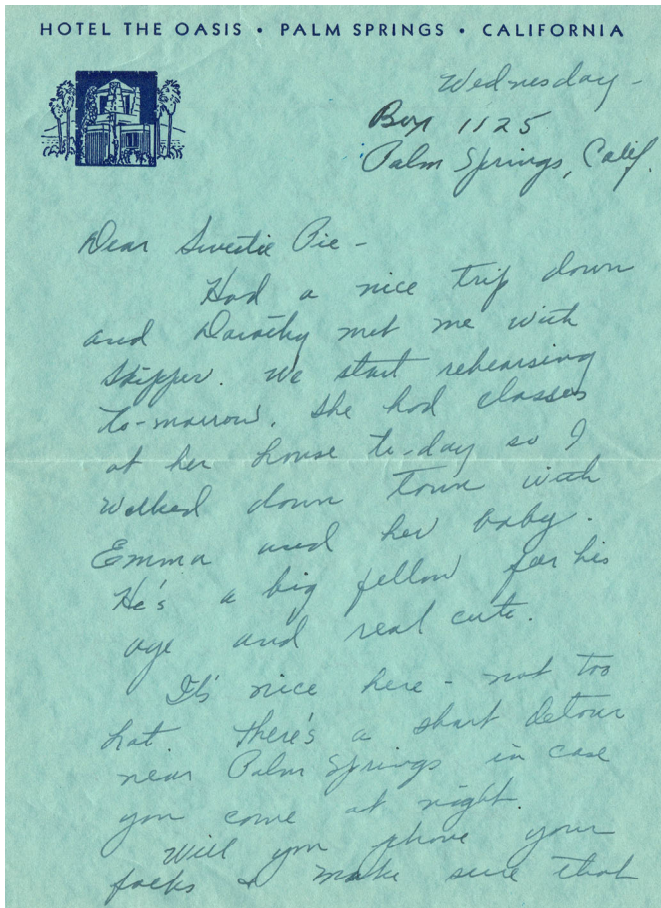 HOTEL THE OASIS • PALM SPRINGS • CALIFORNIA
Wednesday -
Box 1125
Palm Springs, Calif.
Dear Sweetie Pie -
Had a nice trip down
and Dorothy met me with
Skipper. We start rehearsing
to-morrow. She had classes
at her house to-day so I
walked down town with
Emma and her baby.
He's a big fellow for his
age and real cute.
It's nice here - not too
hot. There's a short detour
near Palm Springs in case
you come at night.
Will you phone your
folks & make sure that